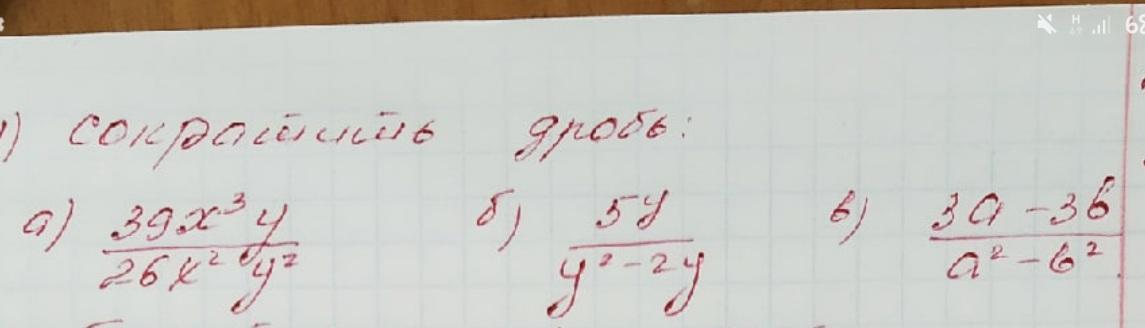 1) сократить дробь:
а) 39x³y / 26x²y² б) 5y / y²-2y в) 3a-3b / a²-b²